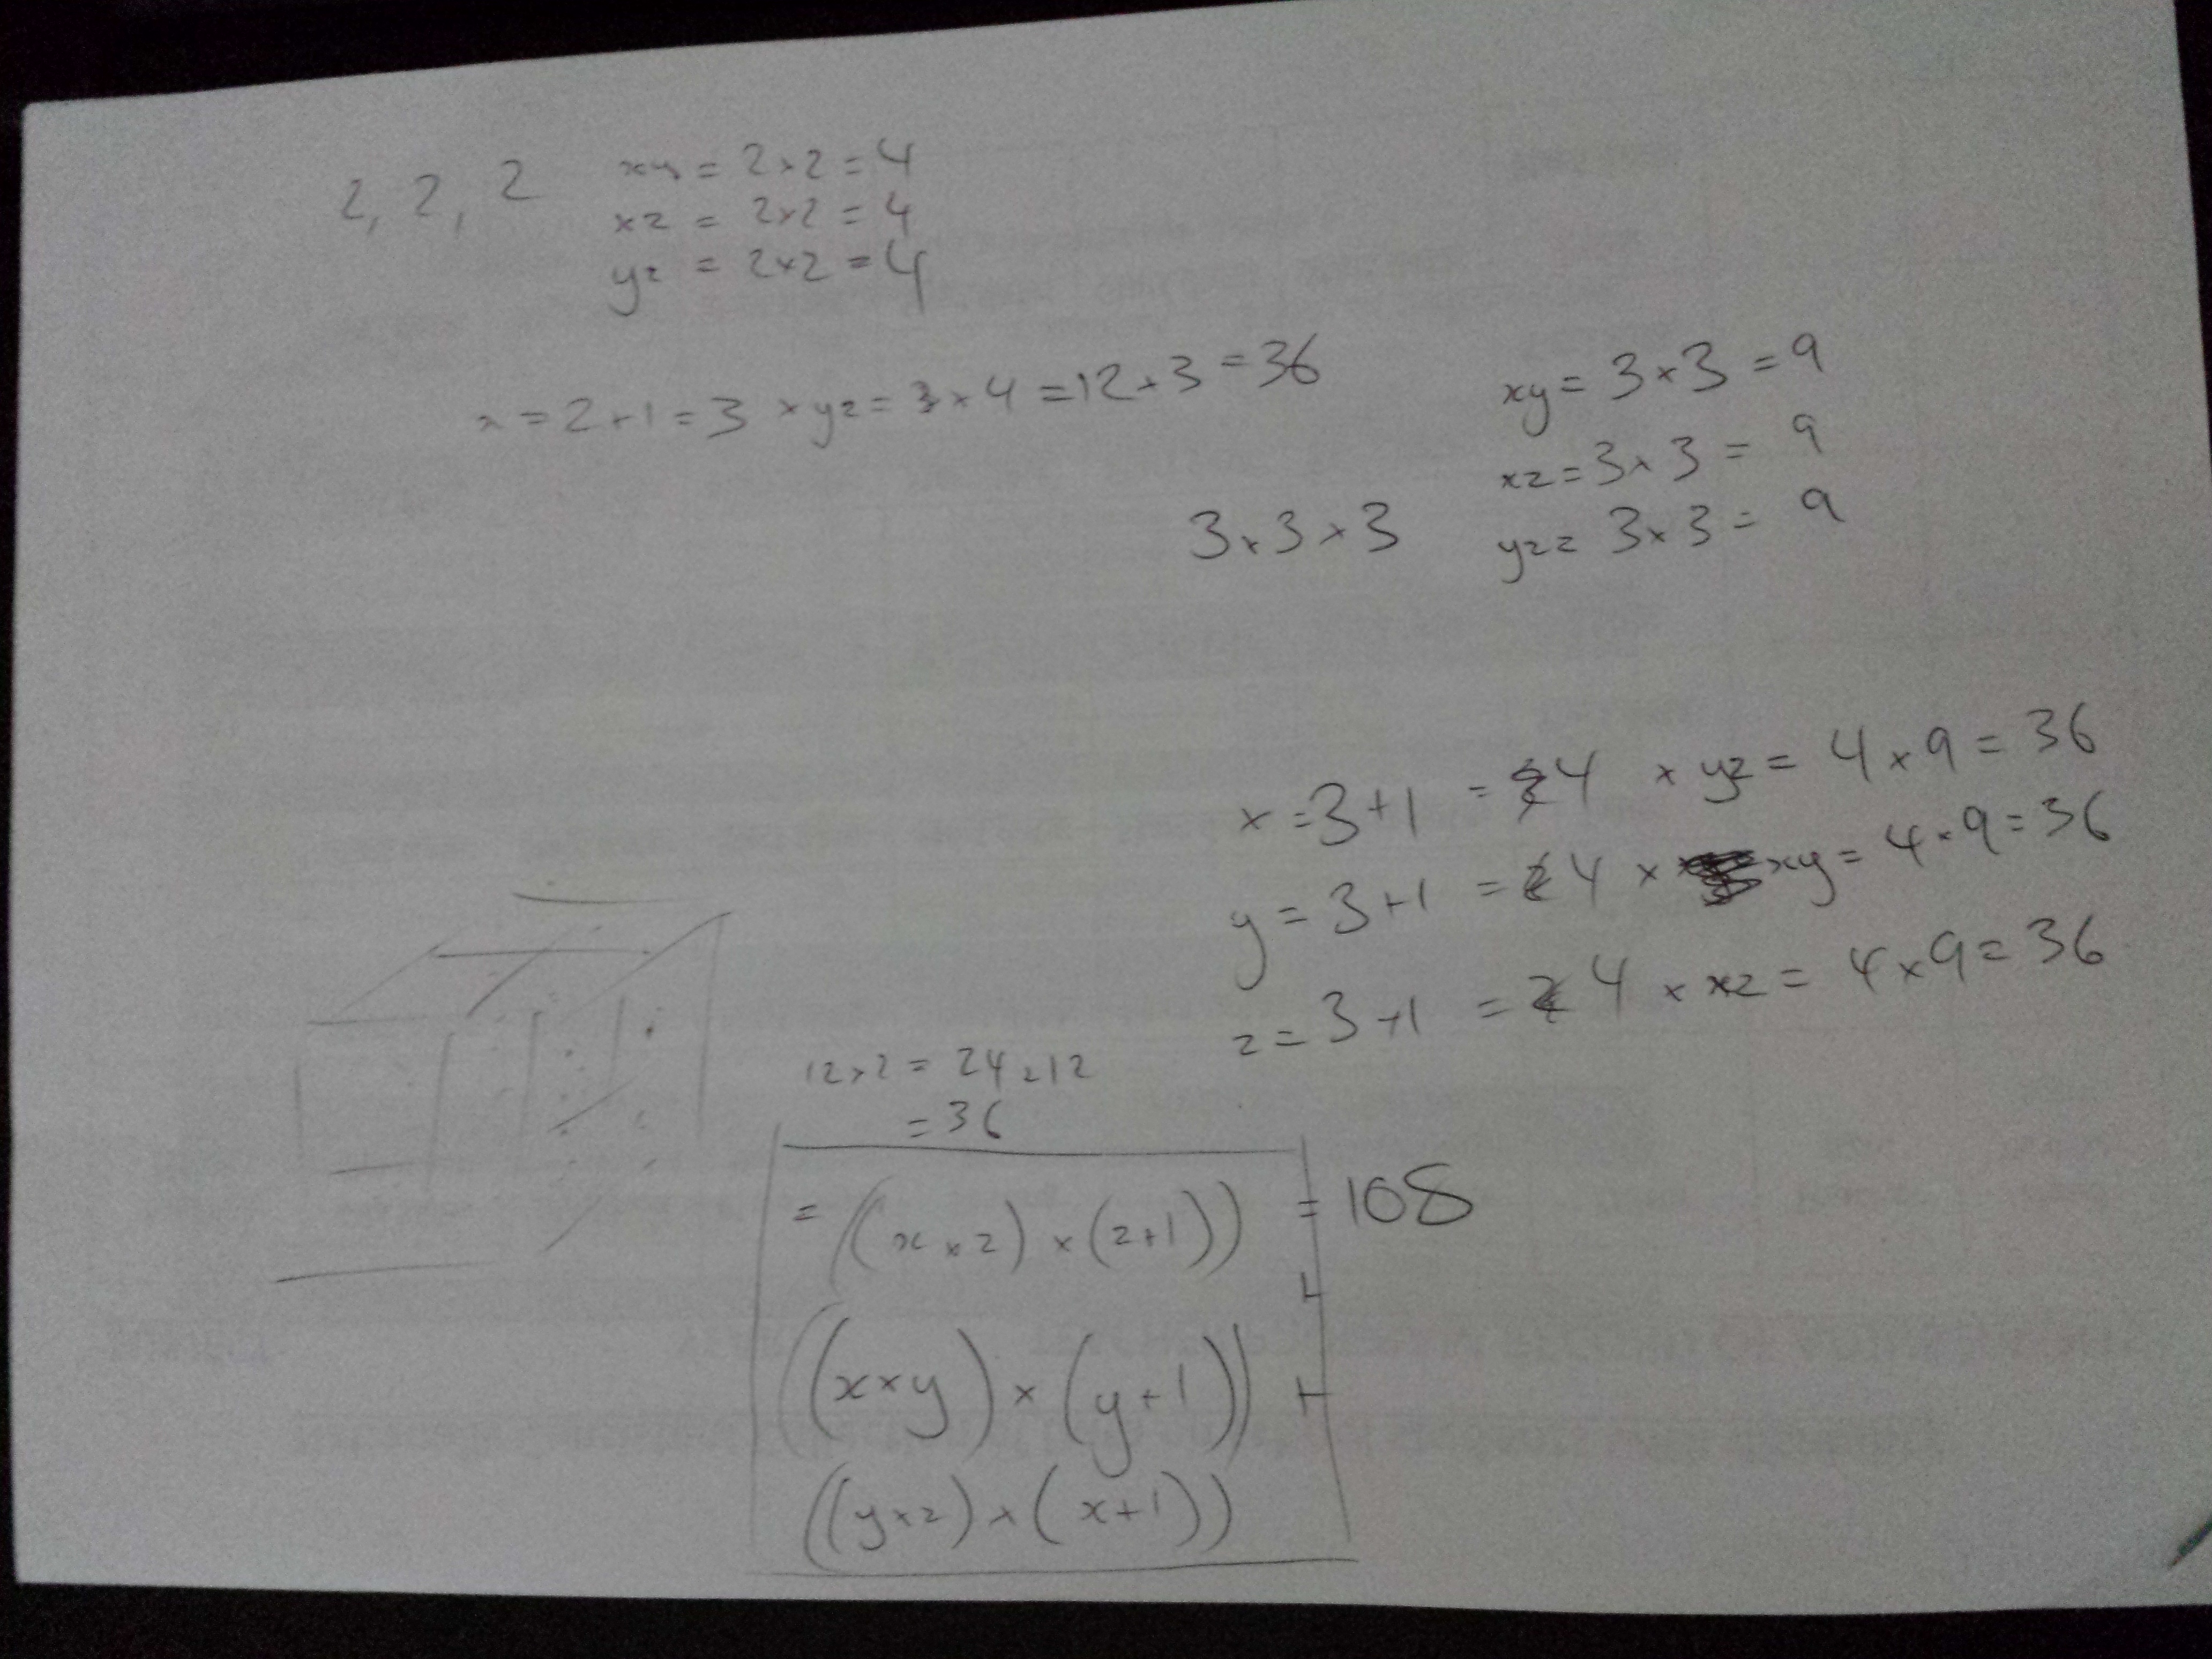 2, 2, 2
xy = 2×2 = 4
xz = 2×2 = 4
yz = 2×2 = 4
x = 2+1 = 3 × yz = 3×4 = 12×3 = 36
xy = 3×3 = 9
xz = 3×3 = 9
yz = 3×3 = 9
3×3×3
x = 3+1 = 4 × yz = 4×9 = 36
y = 3+1 = 4 × xy = 4×9 = 36
z = 3+1 = 4 × xz = 4×9 = 36
12×2 = 24+12
= 36
= ((x×z)×(z+1)) = 108
+
((x×y)×(y+1)) +
((y×z)×(x+1))